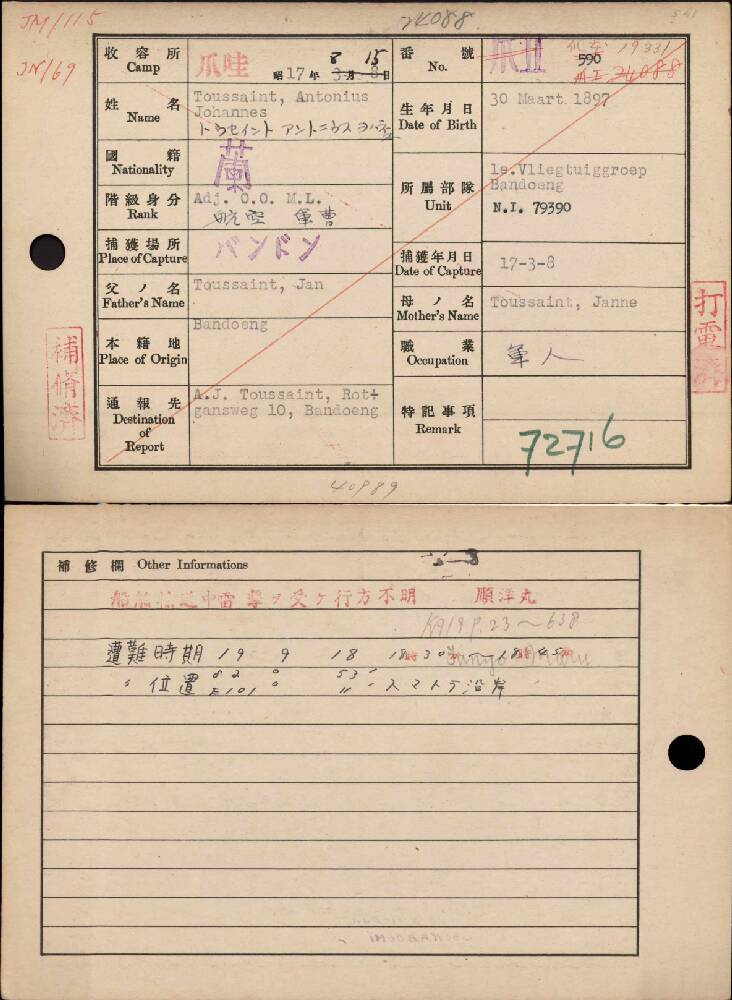 JM/115
24088
JN/69
收容所 Camp
爪哇
昭17年 8月 15日
3 8
番號 No.
爪II
590
19331
爪I 24088
姓名 Name
Toussaint, Antonius
Johannes
トウセイント アントニウス ヨハネス
生年月日 Date of Birth
30 Maart 1897
國籍 Nationality
蘭
階級身分 Rank
Adj. O.O. M.L.
航空 軍曹
所屬部隊 Unit
1e.Vliegtuiggroep
Bandoeng
N.I. 79390
捕獲場所 Place of Capture
バンドン
捕獲年月日 Date of Capture
17-3-8
父ノ名 Father's Name
Toussaint, Jan
母ノ名 Mother's Name
Toussaint, Janne
本籍地 Place of Origin
Bandoeng
職業 Occupation
軍人
通報先 Destination of Report
A.J. Toussaint, Rot-
gansweg 10, Bandoeng
特記事項 Remark
72716
補脩濟
打電濟
40989
補修欄 Other Informations
船舶輸送中雷擊ヲ受ケ行方不明 順洋丸
KA19 P.23~638
Junyo Maru
遭難時期 19 9 18 18時30分~18時45分
〃 位置 S 2° 53′
E 101° 11′ スマトラ沿岸